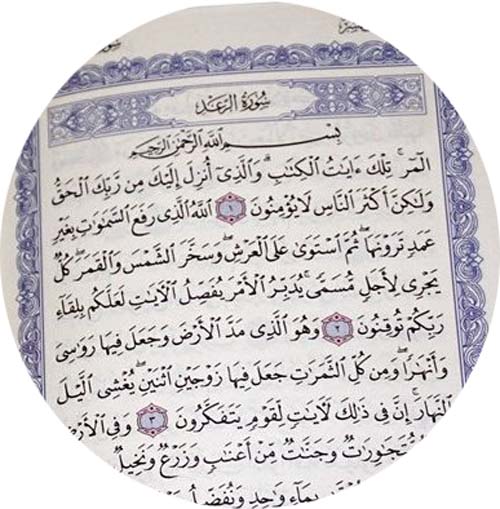 سُورَةُ الرَّعْدِ
بِسْمِ اللَّهِ الرَّحْمَٰنِ الرَّحِيمِ
الٓمٓرۚ تِلْكَ ءَايَٰتُ الْكِتَٰبِۗ وَالَّذِىٓ أُنزِلَ إِلَيْكَ مِن رَّبِّكَ الْحَقُّ
وَلَٰكِنَّ أَكْثَرَ النَّاسِ لَا يُؤْمِنُونَ ١ اللَّهُ الَّذِى رَفَعَ السَّمَٰوَٰتِ بِغَيْرِ
عَمَدٍ تَرَوْنَهَاۖ ثُمَّ اسْتَوَىٰ عَلَى الْعَرْشِۖ وَسَخَّرَ الشَّمْسَ وَالْقَمَرَۖ كُلٌّ
يَجْرِى لِأَجَلٍ مُّسَمًّىۚ يُدَبِّرُ الْأَمْرَ يُفَصِّلُ الْءَايَٰتِ لَعَلَّكُم بِلِقَآءِ
رَبِّكُمْ تُوقِنُونَ ٢ وَهُوَ الَّذِى مَدَّ الْأَرْضَ وَجَعَلَ فِيهَا رَوَٰسِىَ
وَأَنْهَٰرًاۖ وَمِن كُلِّ الثَّمَرَٰتِ جَعَلَ فِيهَا زَوْجَيْنِ اثْنَيْنِۖ يُغْشِى الَّيْلَ
النَّهَارَۚ إِنَّ فِى ذَٰلِكَ لَءَايَٰتٍ لِّقَوْمٍ يَتَفَكَّرُونَ ٣ وَفِى الْأَرْضِ
مُّتَجَٰوِرَٰتٌ وَجَنَّٰتٌ مِّنْ أَعْنَٰبٍ وَزَرْعٌ وَنَخِيلٌ
بِمَآءٍ وَٰحِدٍ وَنُفَضِّلُ